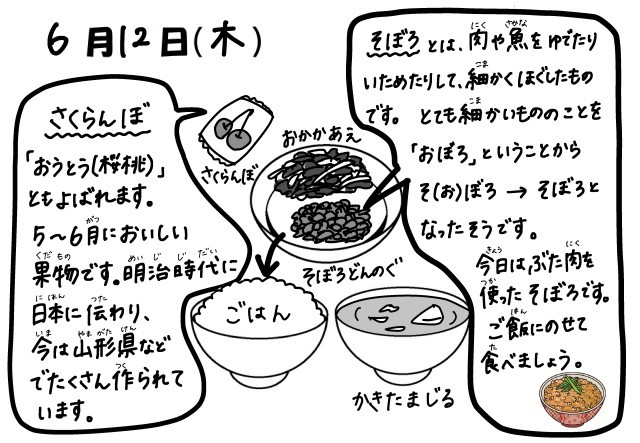 6月12日(木)
さくらんぼ
「おうとう(桜桃)」
ともよばれます。
5〜6月においしい
果物です。明治時代に
日本に伝わり、
今は山形県など
でたくさん作られて
います。
さくらんぼ
おかかあえ
そぼろどんのぐ
ごはん
かきたまじる
そぼろとは、肉や魚をゆでたり
いためたりして、細かくほぐしたもの
です。とても細かいもののことを
「おぼろ」ということから
そ(お)ぼろ → そぼろと
なったそうです。
今日は、ぶた肉を
使ったそぼろです。
ご飯にのせて
食べましょう。